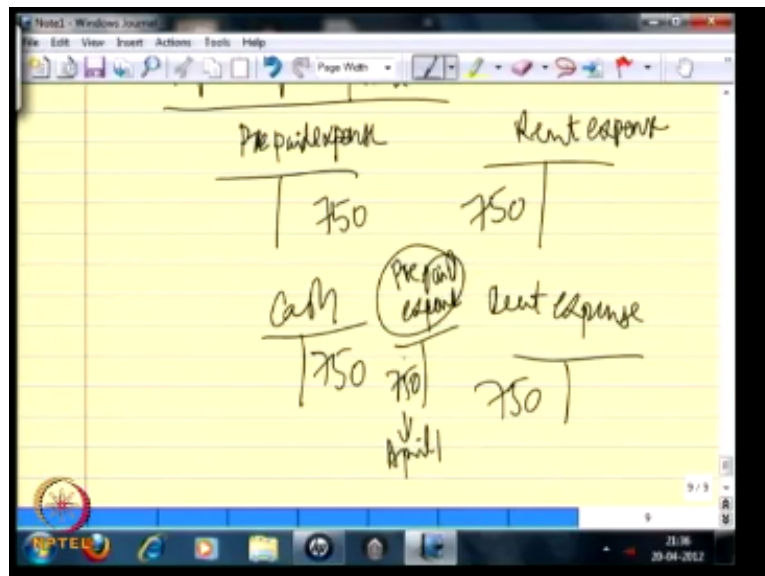 Note1 - Windows Journal
File Edit View Insert Actions Tools Help
Page Width
Prepaid expense Rent expense
750 750
Cash Prepaid expense Rent expense
750 750 750
April 1
9 / 9
9
NPTEL
21:36
20-04-2012